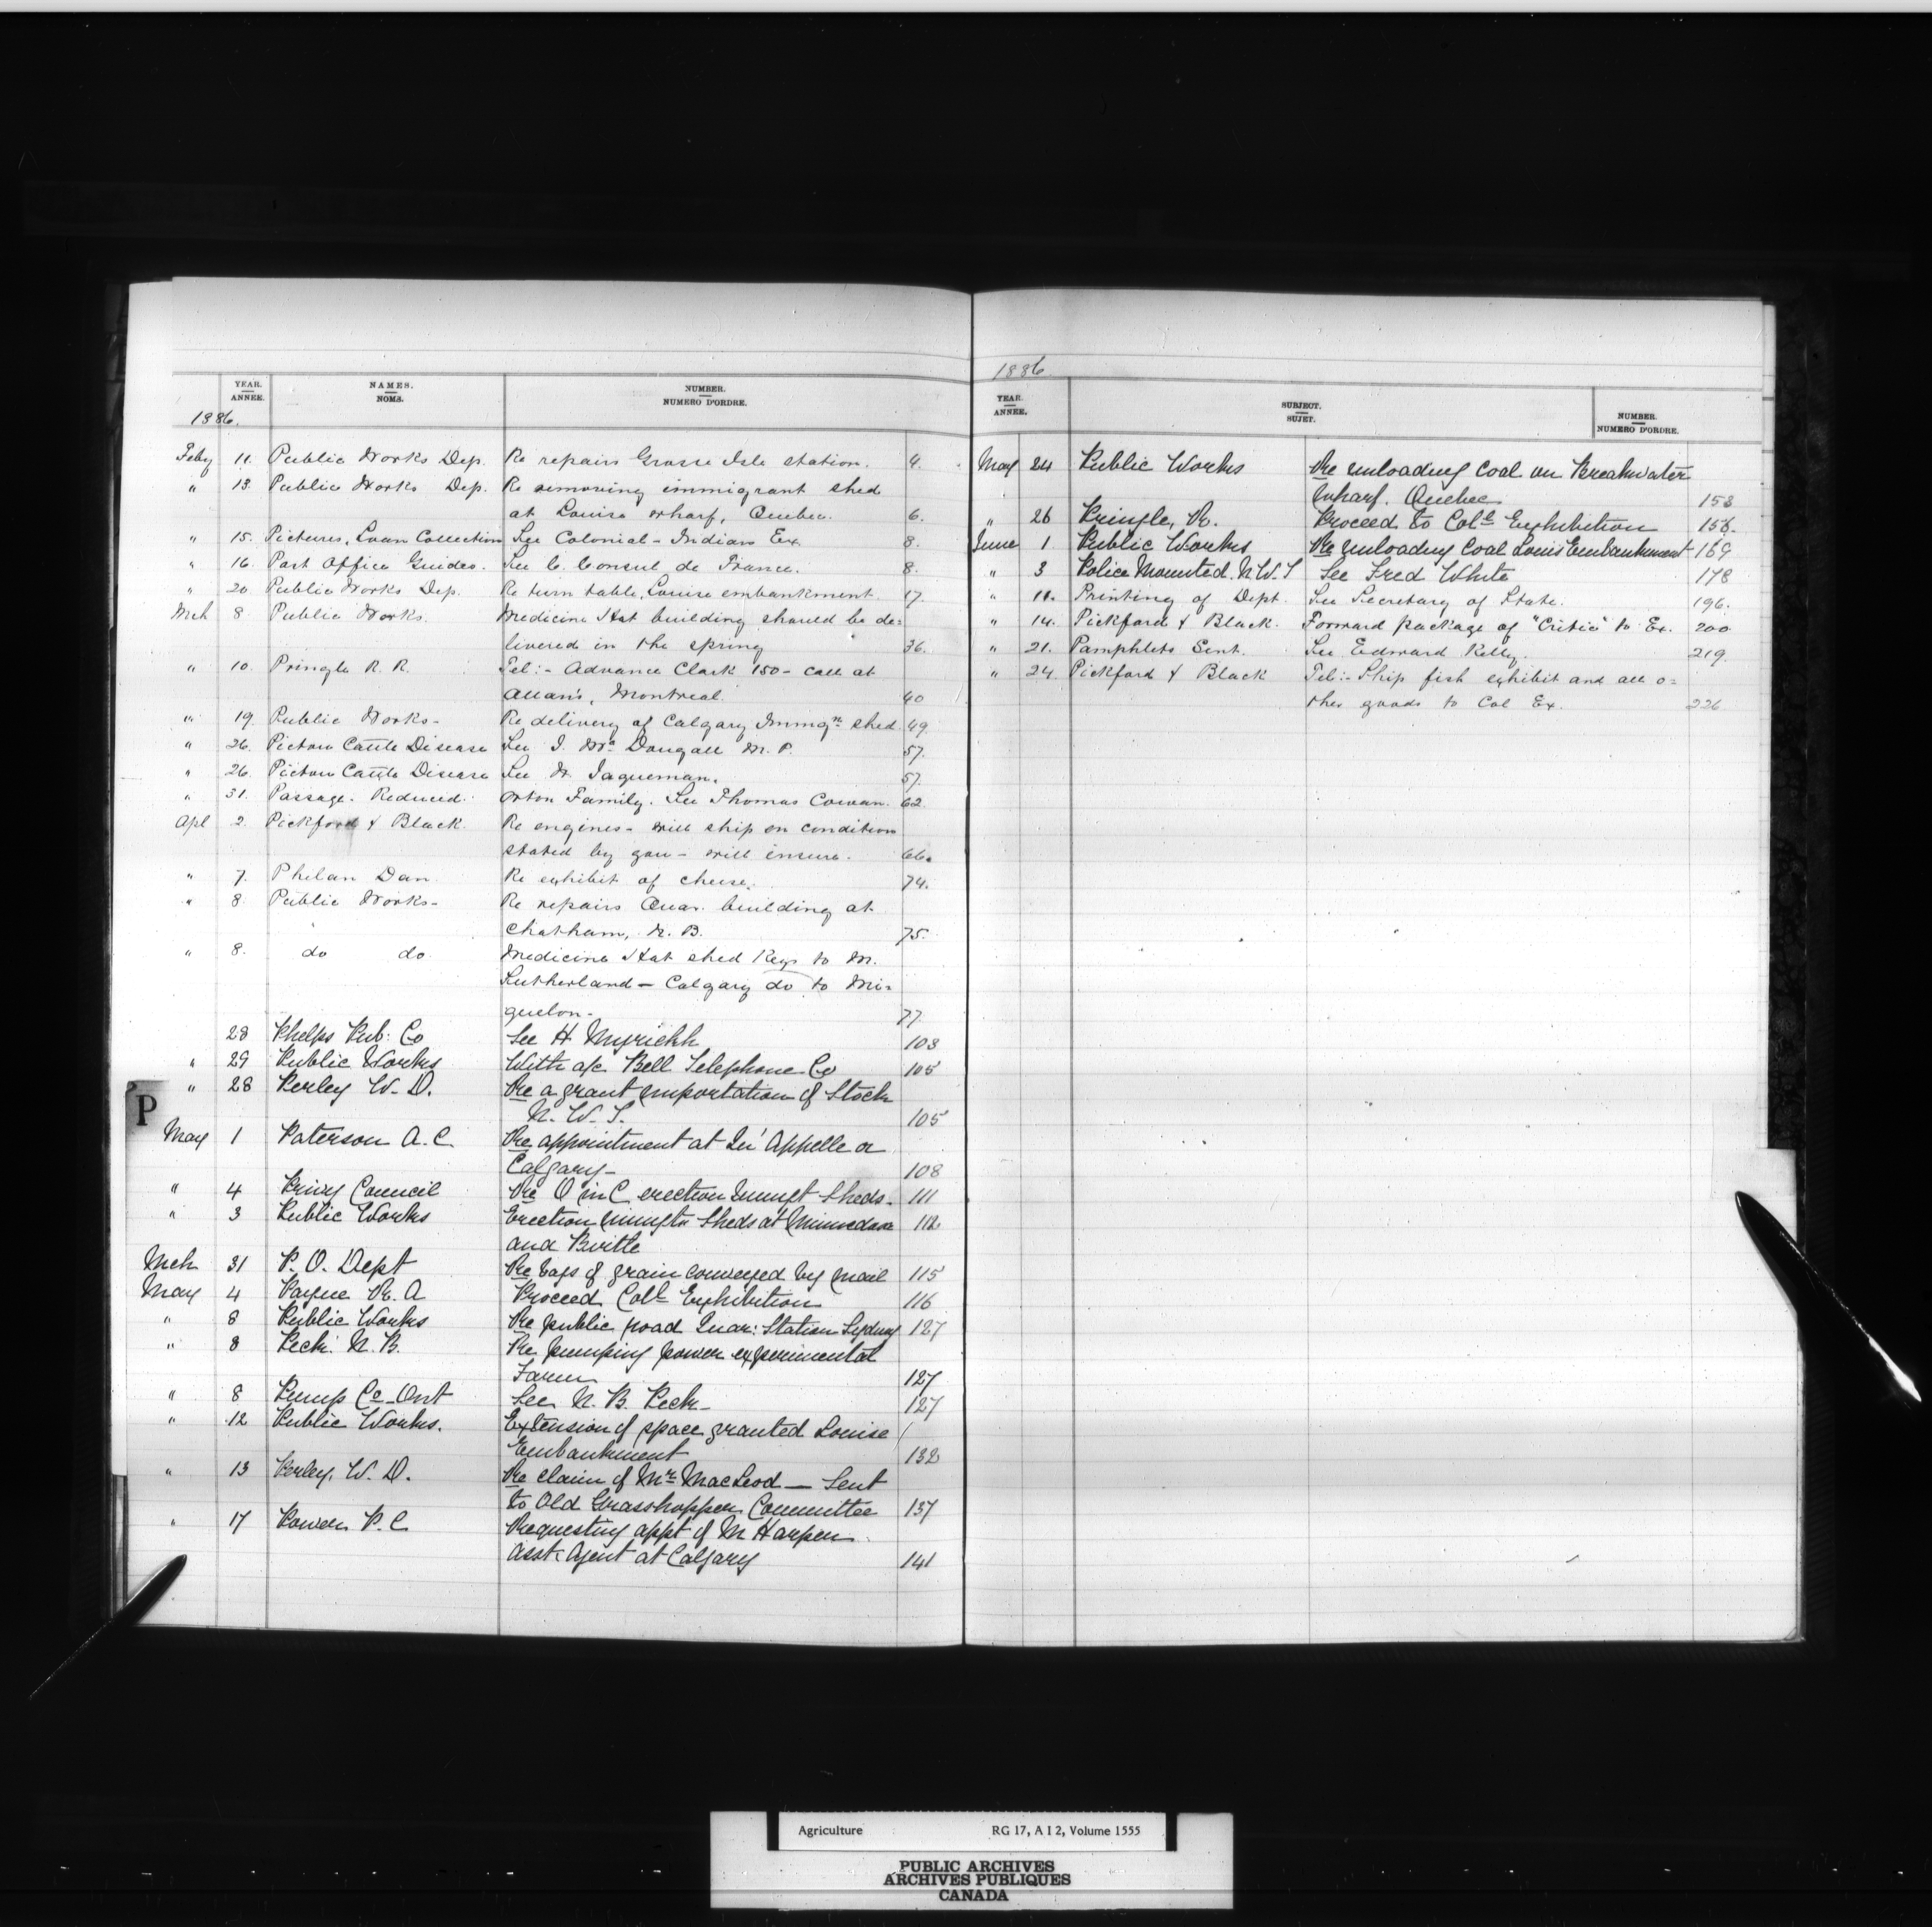 YEAR. ANNEE. NAMES. NOMS. NUMBER. NUMERO D'ORDRE.
1886.
Feby 11. Public Works Dep. Re repairs Grosse Isle station. 4.
" 13. Public Works Dep. Re removing immigrant shed
at Louise wharf, Quebec. 6.
" 15. Pictures, Loan Collection See Colonial - Indian Ex. 8.
" 16. Post Office Guides. See C. Consul de France. 8.
" 20. Public Works Dep. Re turn table, Louise embankment. 17.
Mch 8. Public Works. Medicine Hat building should be de=
livered in the spring 36.
" 10. Pringle R. R. Tel:- Advance Clark 150 - call at
Allan's, Montreal. 40
" 19. Public Works - Re delivery of Calgary Immgn shed. 49.
" 26. Pictou Cattle Disease See I. Mc Dougall M. P. 57.
" 26. Pictou Cattle Disease See W. Jaqueman. 57.
" 31. Passage. Reduced. Orton Family. See Thomas Cowan. 62.
Apl 2. Pickford & Black. Re engines - will ship on condition
stated by you - will insure. 66.
" 7. Phelan Dan. Re exhibit of cheese. 74.
" 8. Public Works - Re repairs Quar. building at
Chatham, N. B. 75.
" 8. do do Medicine Hat shed Keys to M.
Sutherland - Calgary do to Mi=
quelon. 77.
28 Phelps Pub. Co See H. Myrickh 103
" 29 Public Works With a/c Bell Telephone Co 105
" 28 Perley W. D. Re a grant importation of Stock
N. W. T. 105
P
May 1 Paterson A. C. Re appointment at Qu'Appelle or
Calgary - 108
" 4 Privy Council Re O in C erection Immgt Sheds. 111
" 3 Public Works Erection Immgtn Sheds at Minnedosa 112
and Birtle
Mch 31 P. O. Dept Re bags of grain conveyed by mail 115
May 4 Payne R. A Proceed Coll Exhibition 116
" 8 Public Works Re public road Quar: Station Sydney 127
" 8 Peck. N. B. Re pumping power experimental
Farm 127
" 8 Pump Co Ont See N. B. Peck - 127
" 12 Public Works. Extension of space granted Louise
Embankment 132
" 13 Perley, W. D. Re claim of Mr MacLeod - Sent
to Old Grasshopper Committee 137
" 17 Power P. C Requesting appt of M Harper
Asst Agent at Calgary 141
1886.
YEAR. ANNEE. SUBJECT. SUJET. NUMBER. NUMERO D'ORDRE.
May 24 Public Works Re unloading Coal on Breakwater
Wharf. Quebec 153
" 26 Pringle, R. Proceed to Coll Exhibition 156.
June 1 Public Works Re unloading Coal Louis Embankment 169
" 3 Police Mounted. N W. T See Fred White 178
" 11. Printing of Dept. See Secretary of State. 196.
" 14. Pickford & Black. Forward package of "Critic" to Ex. 200
" 21. Pamphlets Sent. See Edward Kelly. 219.
" 24. Pickford & Black Tel:- Ship fish exhibit and all o=
ther goods to Col Ex. 226
Agriculture RG 17, A I 2, Volume 1555
PUBLIC ARCHIVES
ARCHIVES PUBLIQUES
CANADA